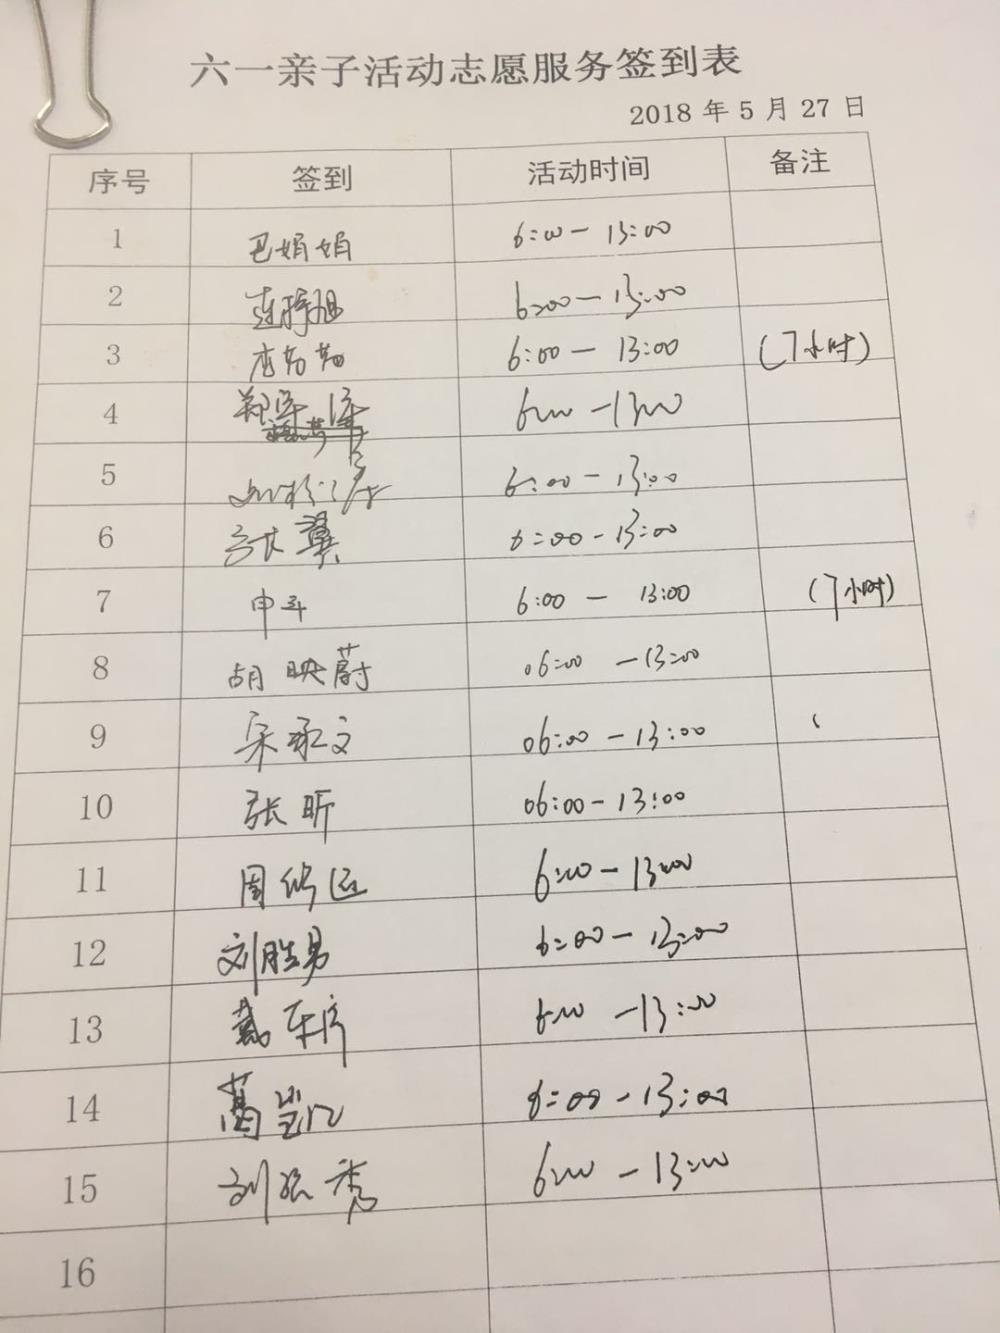 六一亲子活动志愿服务签到表
2018 年 5 月 27 日
序号 签到 活动时间 备注
1 巴娟娟 6:00－13:00
2 6:00－13:00
3 6:00－13:00 (7小时)
4 6:00－13:00
5 6:00－13:00
6 张翼 6:00－13:00
7 申斗 6:00－13:00 (7小时)
8 胡映蔚 06:00－13:00
9 宋承文 06:00－13:00
10 张昕 06:00－13:00
11 6:00－13:00
12 刘胜男 6:00－13:00
13 6:00－13:00
14 6:00－13:00
15 6:00－13:00
16